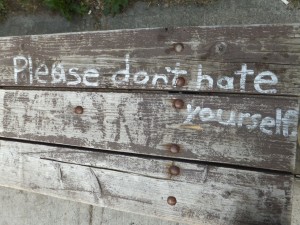 Please don't hate
yourself